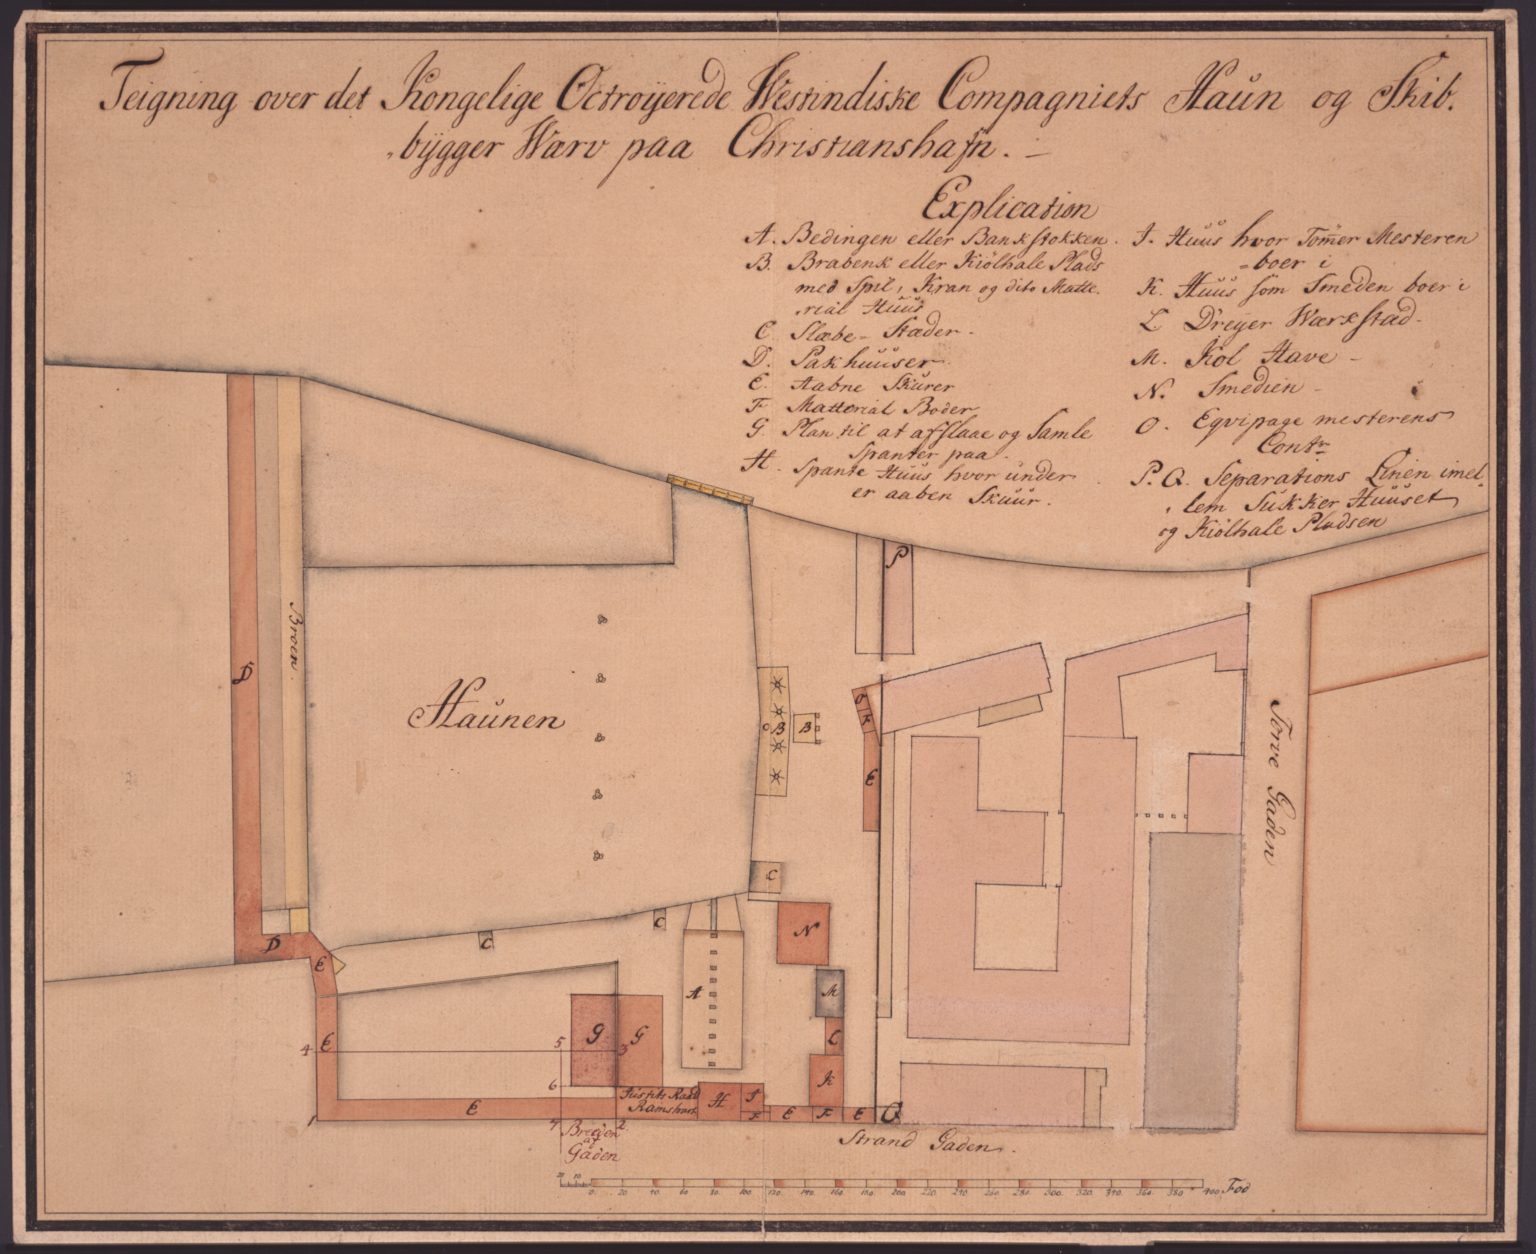 Teigning over det Kongelige Octroÿerede Westindiske Compagniets Haun og Skib.
bÿgger Wærv paa Christianshafn.
Explication
A. Bedingen eller Bankstokken.
B. Brabenk eller Kiölhale Plads
med Spil, Kran og dito Matte.
rial Huus
C. Slæbe-Stæder.
D. Pakhuuser.
E. Aabne Skurer
F. Matterial Boder
G. Plan til at afslaae og Samle
Spanter paa.
H. Spante Huus hvor under
er aaben Skuur.
I. Huus hvor Tom̄er Mesteren
boer i
K. Huus som Smeden boer i
L. Dreÿer Wærkstad.
M. Kol Have
N. Smedien
O. Eqvipage mesterens
Contr
P. Q. Separations Linen imel
lem Sukker Huuset
og Kiölhale Pladsen
P
D
Broen
Haunen
B
B
O
K
E
C
Torve Gaden
D
E
C
C
N
A
M
E
G
G
L
K
4
5
3
6
E
Justits Raad
H
I
F
E
F
E
Q
1
2
Gaden
Strand Gaden.
20 10 0 20 40 60 80 100 120 140 160 180 200 220 240 260 280 300 320 340 360 380 400 Fod